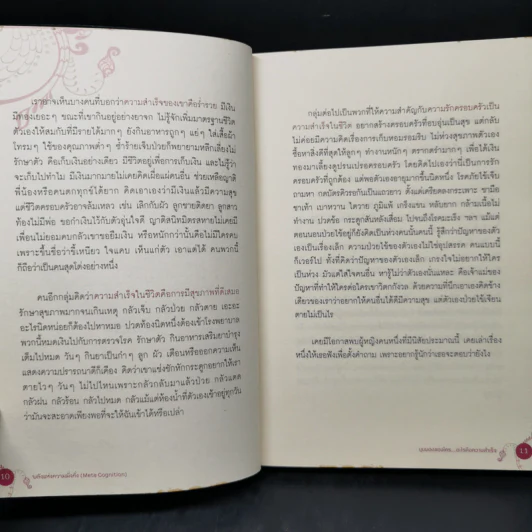 เราอาจเห็นบางคนที่บอกว่าความสำเร็จของเขาคือร่ำรวย มีเงิน
มีทองเยอะๆ ขณะที่เขากินอยู่อย่างยาจก ไม่รู้จักเพิ่มมาตรฐานชีวิต
ตัวเองให้สมกับที่มีรายได้มากๆ ยังกินอาหารถูกๆ แย่ๆ ใส่เสื้อผ้า
โทรมๆ ใช้ของคุณภาพต่ำๆ ซ้ำร้ายเจ็บป่วยก็พยายามหลีกเลี่ยงไม่
รักษาตัว คือเก็บเงินอย่างเดียว มีชีวิตอยู่เพื่อการเก็บเงิน และไม่รู้ว่า
จะเก็บไปทำไม มีเงินมากมายไม่เคยคิดเผื่อแผ่คนอื่น ช่วยเหลือญาติ
พี่น้องหรือคนตกทุกข์ได้ยาก คิดเอาเองว่ามีเงินแล้วมีความสุข
แต่ชีวิตครอบครัวอาจล้มเหลว เช่น เลิกกับผัว ลูกชายติดยา ลูกสาว
ท้องไม่มีพ่อ ขอกำเงินไว้กับตัวอุ่นใจดี ญาติสนิทมิตรสหายไม่เคยมี
เพื่อนไม่ยอมคบกลัวเขาขอยืมเงิน หรือหนักกว่านั้นคือไม่มีใครคบ
เพราะขึ้นชื่อว่าขี้เหนียว ใจแคบ เห็นแก่ตัว เอาแต่ได้ คนพวกนี้
ก็ถือว่าเป็นคนสุดโต่งอย่างหนึ่ง
คนอีกกลุ่มคิดว่าความสำเร็จในชีวิตคือการมีสุขภาพที่ดีเสมอ
รักษาสุขภาพมากจนเกินเหตุ กลัวเจ็บ กลัวป่วย กลัวตาย เอะอะ
อะไรนิดหน่อยก็ต้องไปหาหมอ ปวดท้องนิดหนึ่งต้องเข้าโรงพยาบาล
พวกนี้หมดเงินไปกับการตรวจโรค รักษาตัว กินอาหารเสริมยาบำรุง
เต็มไปหมด วันๆ กินยาเป็นกำๆ ลูก ผัว เตือนหรือออกความเห็น
แสดงความปรารถนาดีก็เคือง คิดว่าเขาแช่งชักหักกระดูกอยากให้เรา
ตายไวๆ วันๆ ไม่ไปไหนเพราะกลัวกลับมาแล้วป่วย กลัวแดด
กลัวฝน กลัวร้อน กลัวไปหมด กลัวแม้แต่ห้องน้ำที่ตัวเองเข้าอยู่ทุกวัน
ว่ามันจะสะอาดเพียงพอที่จะให้ฉันเข้าได้หรือเปล่า
10 พลังแห่งความยั้งคิด (Meta-Cognition)
กลุ่มต่อไปเป็นพวกที่ให้ความสำคัญกับความรักครอบครัวเป็น
ความสำเร็จในชีวิต อยากสร้างครอบครัวที่อบอุ่นเป็นสุข แต่กลับ
ไม่ค่อยมีความคิดเรื่องการเก็บหอมรอมริบ ไม่ห่วงสุขภาพตัวเอง
ซื้อหาสิ่งที่ดีที่สุดให้ลูกๆ ทำงานหนักๆ ตรากตรำมากๆ เพื่อได้เงิน
ทองมาเลี้ยงดูปรนเปรอครอบครัว โดยคิดไปเองว่านี่เป็นการรัก
ครอบครัวที่ถูกต้อง แต่พอตัวเองอายุมากขึ้นนิดหนึ่ง โรคภัยไข้เจ็บ
ถามหา กดบัตรคิวรอกันเป็นแถวยาว ตั้งแต่เครียดลงกระเพาะ ชามือ
ชาเท้า เบาหวาน ไตวาย ภูมิแพ้ เกร็งแขน หลับยาก กล้ามเนื้อไม่
ทำงาน ปวดข้อ กระดูกสันหลังเสื่อม ไปจนถึงโรคมะเร็ง ฯลฯ แม้แต่
ตอนนอนป่วยไข้อยู่ก็ยังคิดเป็นห่วงคนนั้นคนนี้ รู้สึกว่าปัญหาของตัว
เองเป็นเรื่องเล็ก ความป่วยไข้ของตัวเองไม่ใช่อุปสรรค คนแบบนี้
ก็เวอร์ไป ทั้งที่คิดว่าปัญหาของตัวเองเล็ก เกรงใจไม่อยากให้ใคร
เป็นห่วง มัวแต่ใส่ใจคนอื่น หารู้ไม่ว่าตัวเองนั่นแหละ คือเจ้าแม่ของ
ปัญหาที่ทำให้ใครต่อใครเขาวิตกกังวล ด้วยความที่นึกเอาเองคิดข้าง
เดียวของเราว่าอยากให้คนอื่นได้ดีมีความสุข แต่ตัวเองป่วยไข้เจียน
ตายไม่เป็นไร
เคยมีโอกาสพบผู้หญิงคนหนึ่งที่มีนิสัยประมาณนี้ เคยเล่าเรื่อง
หนึ่งให้เธอฟังเพื่อตั้งคำถาม เพราะอยากรู้นักว่าเธอจะตอบว่ายังไง
11